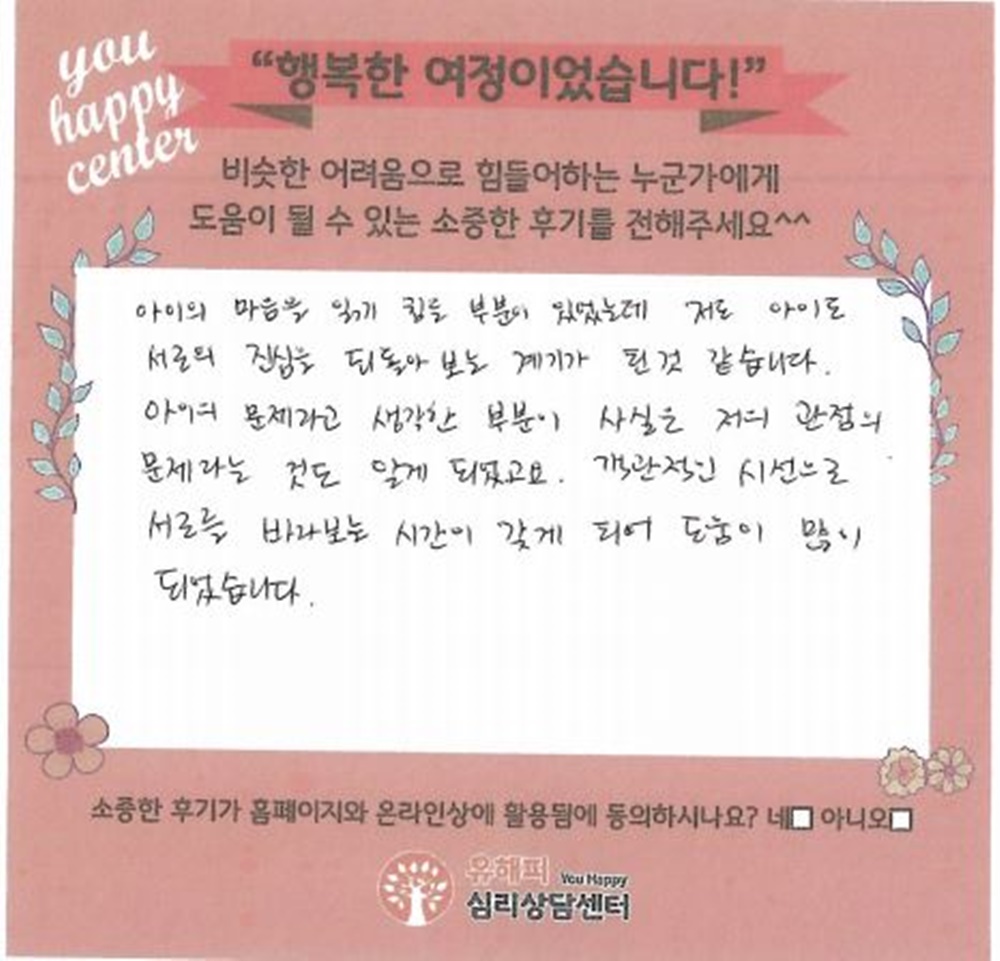 you
happy
center
“행복한 여정이었습니다!”
비슷한 어려움으로 힘들어하는 누군가에게
도움이 될 수 있는 소중한 후기를 전해주세요^^
아이의 마음을 읽기 힘든 부분이 있었는데 저도 아이도
서로의 진심을 되돌아 보는 계기가 된 것 같습니다.
아이의 문제라고 생각한 부분이 사실은 저의 관점의
문제라는 것도 알게 되었고요. 객관적인 시선으로
서로를 바라보는 시간이 갖게 되어 도움이 많이
되었습니다.
소중한 후기가 홈페이지와 온라인상에 활용됨에 동의하시나요? 네□ 아니오□
유해피 You Happy
심리상담센터